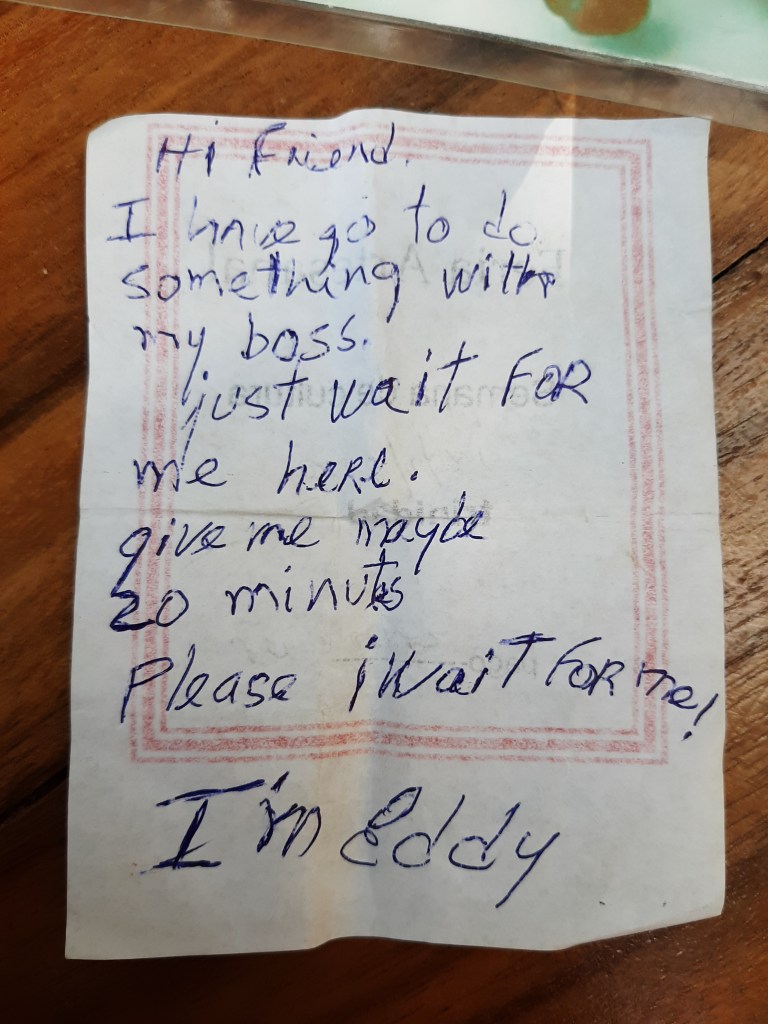 Hi Friend.
I have go to do
something with
my boss.
just wait FOR
me here.
give me maybe
20 minuts
Please wait FOR me!
I'm Eddy